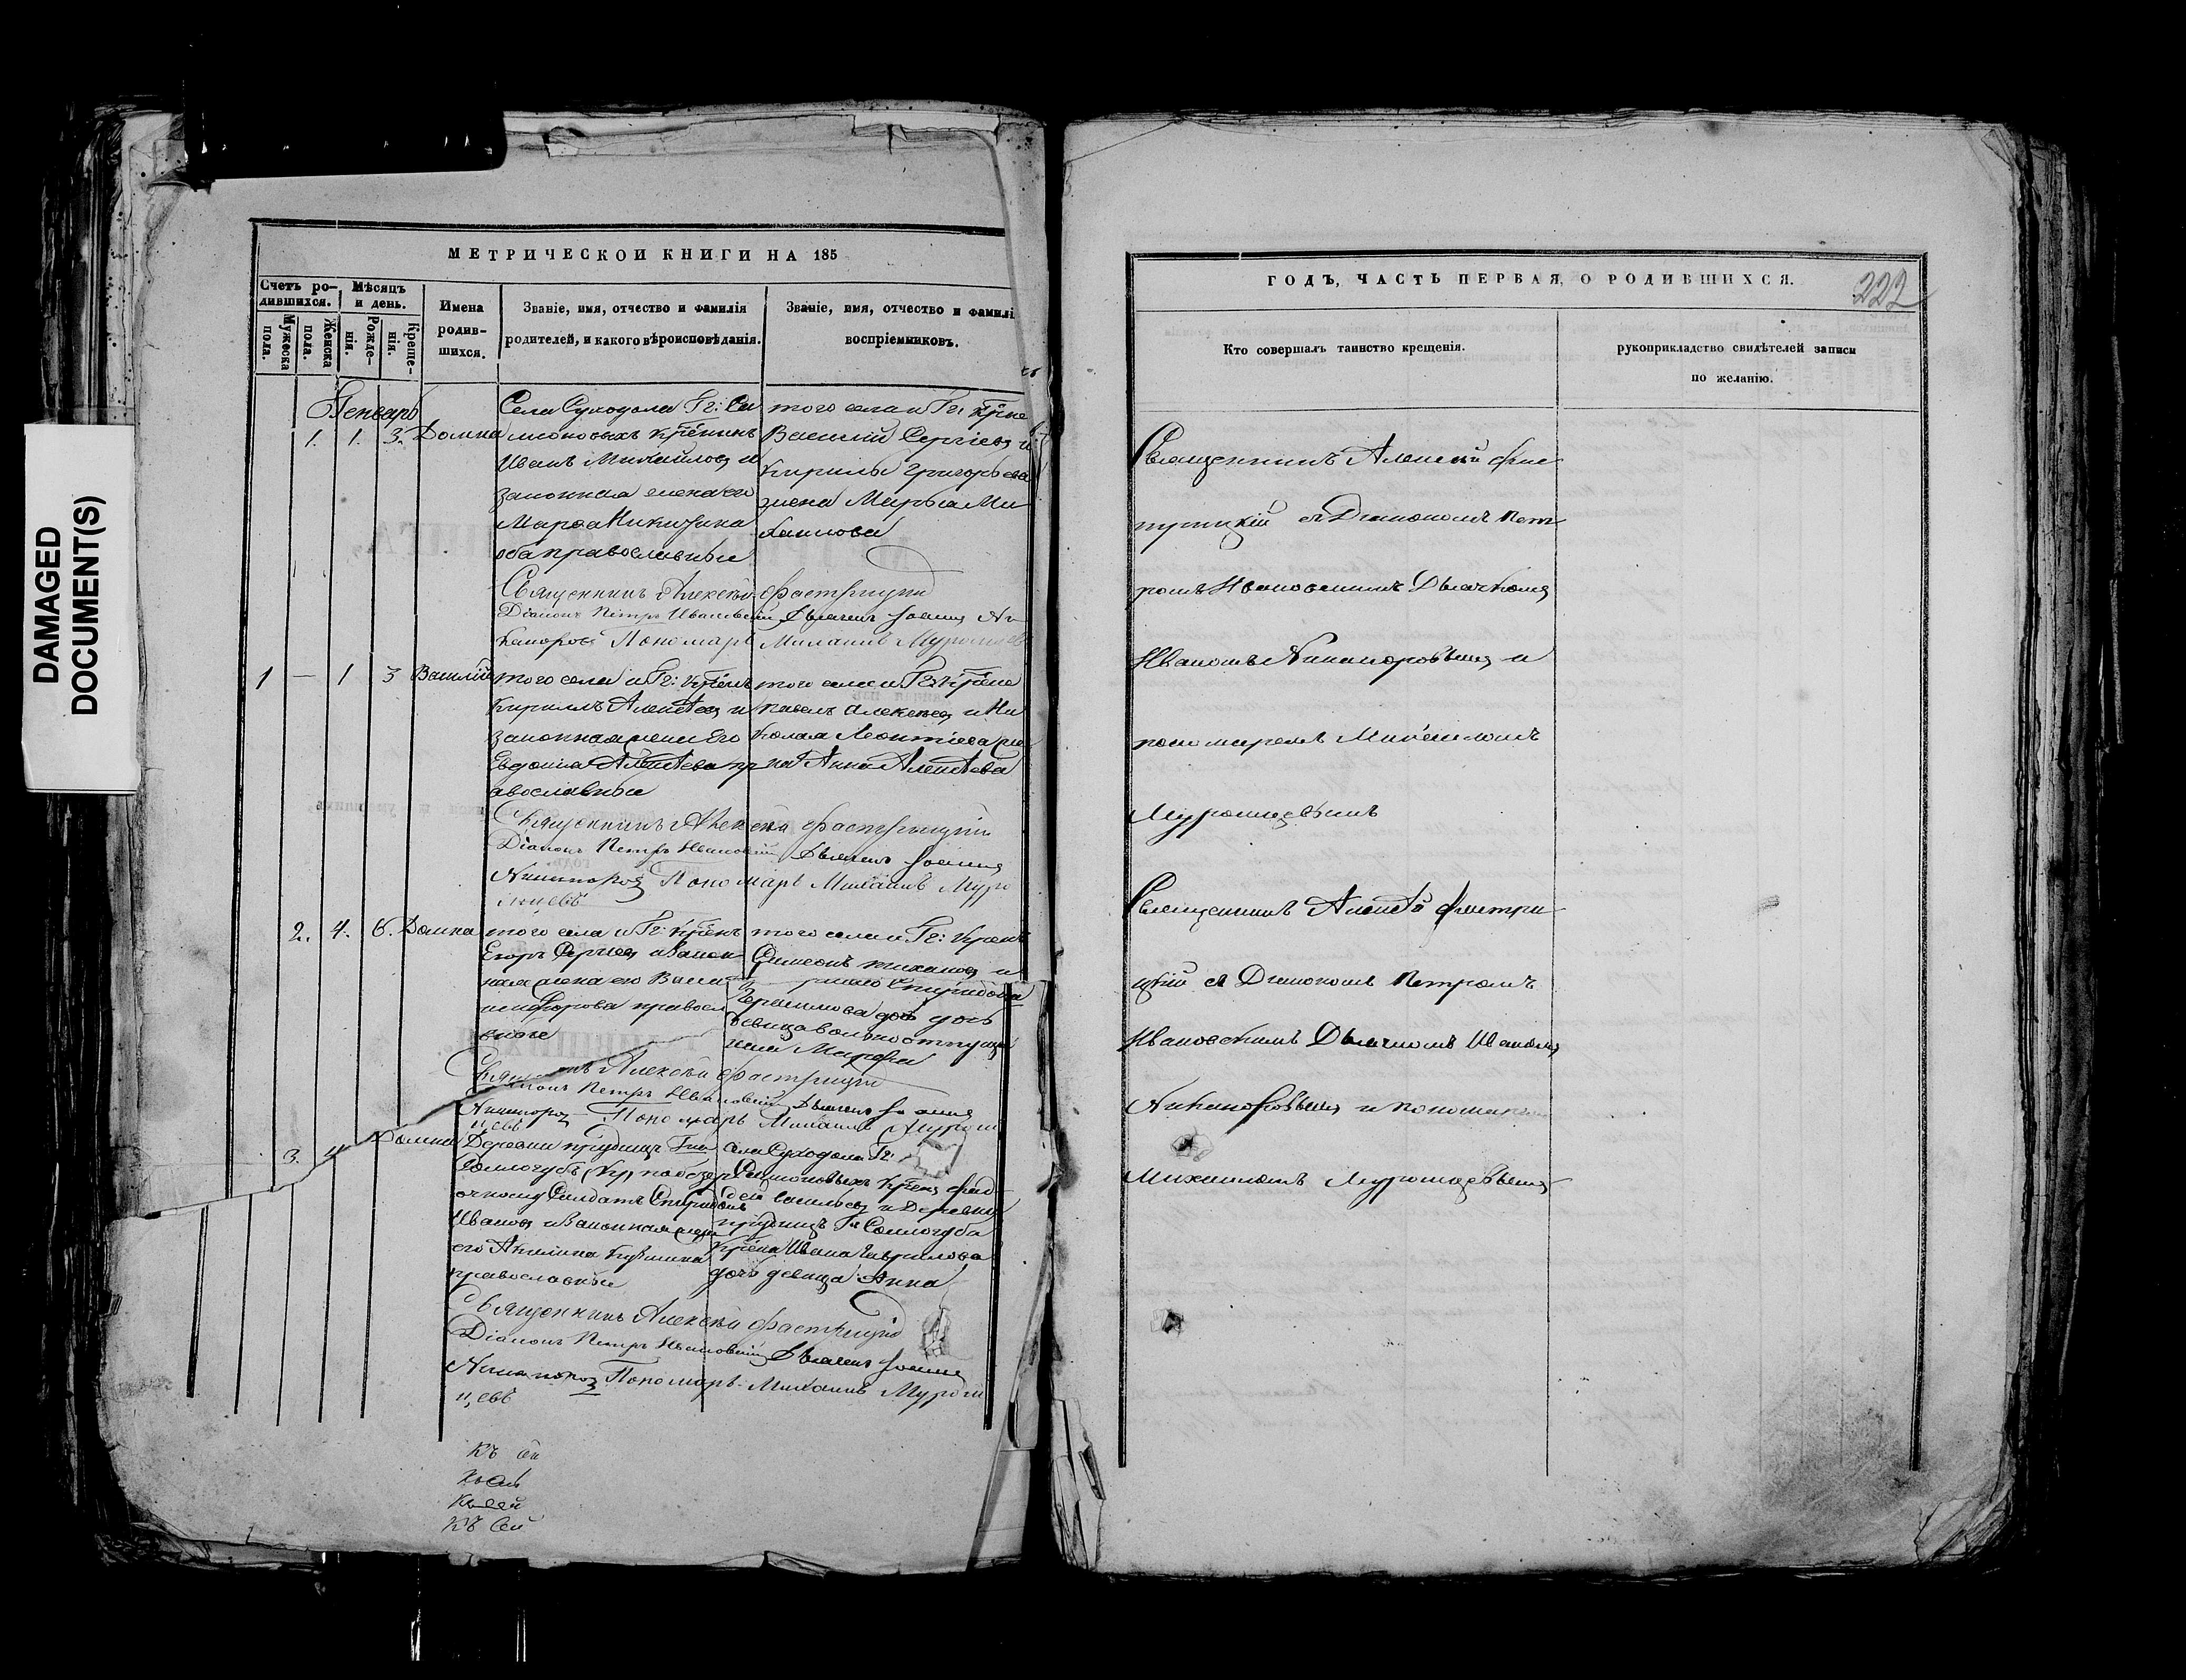 DAMAGED
DOCUMENT(S)
МЕТРИЧЕСКОЙ КНИГИ НА 185
Счетъ ро-
дившихся.
Мѣсяцъ
и день.
Мужеска
пола.
Женска
пола.
Рожде-
нія.
Креще-
нія.
Имена
родив-
шихся.
Званіе, имя, отчество и фамилія
родителей, и какого вѣроисповѣданія.
Званіе, имя, отчество и фамилі
воспріемниковъ.
Генварь
1. 1. 3. Домна
Села Суходола Гг: Си
мионовыхъ крѣнинъ
Иванъ Михайловъ и
законная жена его
Марѳа Никитина
оба православные
того села и Гг:
Василій Сергіевъ и
Кирилы Григорьева
жена Марья Ми
хаилова
Священникъ Алексѣй Фастрицкій
Діаконъ Петръ Ивановскій Дьячекъ Іоаннъ Ни
каноровъ Пономарь Михаилъ Муромцевъ
1 — 1 3 Василій
того села и Гг:
Кириллъ Алексѣевъ и
законная жена Его
Евдокія Алексѣева пр
авославные
того села и Гг:
Павелъ Алексѣевъ и Ни
колая Леонтіева
Анна Алексѣева
Священникъ Алексѣй Фастрицкій
Діаконъ Петръ Ивановскій Дьячекъ Іоаннъ
Никаноровъ Пономарь Михаилъ Муро
мцевъ
2. 4. 6. Домна
того села и Гг:
Егоръ Сергѣевъ и Закон
ная жена его Васи
православ
ные
того села и Гг:
Симеонъ и
Спиридона
Герасимова дочь
девица вольноотпуще
ная Марѳа
Священникъ Алексѣй Фастрицкій
Діаконъ Петръ Ивановскій Дьячекъ Іоаннъ
Никаноровъ Пономарь Михаилъ Муром
цевъ
3. 4 Домна
Деревни Прудищъ Гна
Сологубъ
Солдатъ Спиридонъ
Ивановъ и Законная жена
его Акилина Кузмина
православные
села Суходола Гг:
Симионовыхъ
Васильевъ и Деревни
Прудищъ Гна Сологуба
Ивана Гаврилова
дочь девица Анна
Священникъ Алексѣй Фастрицкій
Діаконъ Петръ Ивановскій Дьячекъ Іоаннъ
Никаноровъ Пономарь Михаилъ Муром
цевъ
Къ сей
Къ сей
Къ сей
ГОДЪ, ЧАСТЬ ПЕРВАЯ, О РОДИВШИХСЯ.
222
Кто совершалъ таинство крещенія.
рукоприкладство свидѣтелей записи
по желанію.
Священникъ Алексѣй Фас
трицкій съ Діакономъ Пет
ромъ Ивановскимъ Дьячкомъ
Иваномъ Никаноровымъ и
пономаремъ Михаиломъ
Муромцевымъ
Священникъ Алексѣй Фастри
цкій съ Діакономъ Петромъ
Ивановскимъ Дьячкомъ Иваномъ
Никаноровымъ и пономаремъ
Михаиломъ Муромцевымъ